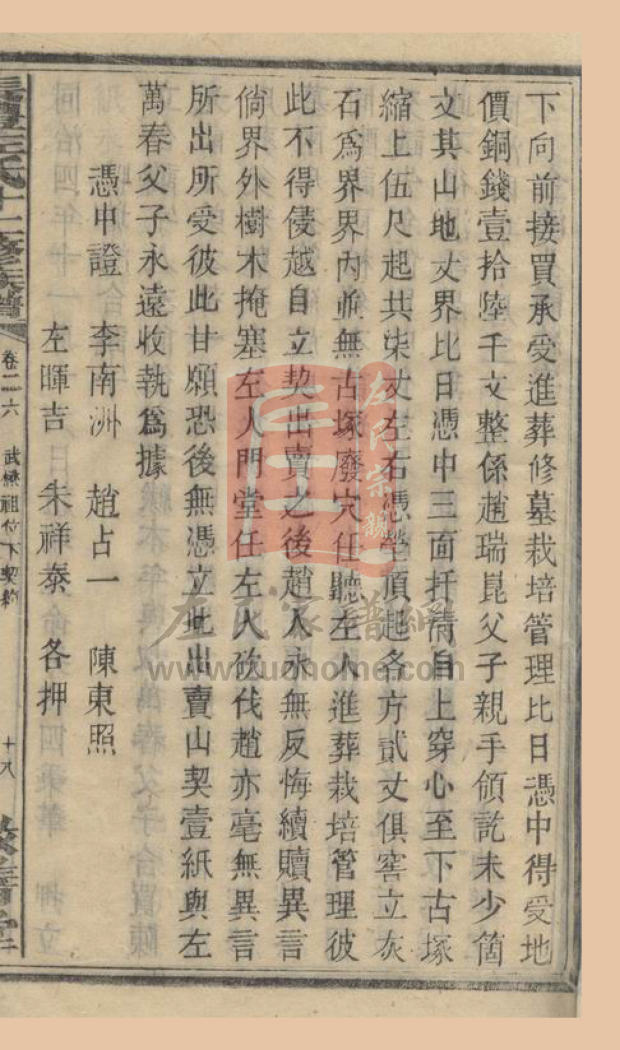 下向前接買承受進葬修墓栽培管理比日憑中得受地
價銅錢壹拾陸千文整係趙瑞崑父子親手領訖未少箇
文其山地丈界比日憑中三面扦清自上穿心至下古塚
縮上伍尺起共柒丈左右憑塋頂起各方貳丈俱窖立灰
石爲界界內並無古塚廢穴任聽左人進葬栽培管理彼
此不得侵越自立契出賣之後趙人永無反悔續贖異言
倘界外樹木掩塞左人門堂任左人砍伐趙亦毫無異言
所出所受彼此甘願恐後無憑立此出賣山契壹紙與左
萬春父子永遠收執爲據
憑中證 李南洲 趙占一 陳東照
左暉吉 朱祥泰 各押
卷二六 武 祖位下契約 十八
左氏宗親
左氏家譜網
www.zuohome.com